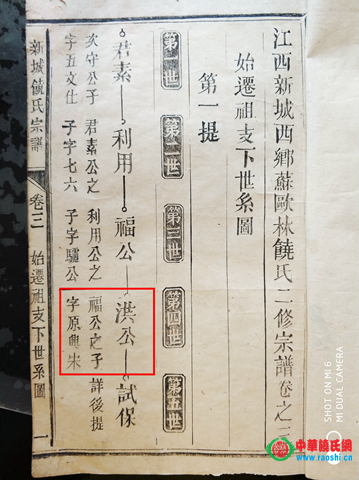 江西新城西鄉蘇歐林饒氏二修宗譜卷之三
始遷祖支下世系圖
第一提
第一世
第二世
第三世
第四世
第五世
君素
利用
福公
洪公
試保
次守公子
字五文仕
君素公之
子字七六
利用公之
子字驢公
福公之子
字原興朱
詳後提
新城饒氏宗譜
卷三
始遷祖支下世系圖
一
SHOT ON MI 6
MI DUAL CAMERA
中華饒氏網
www.raoshi.cn